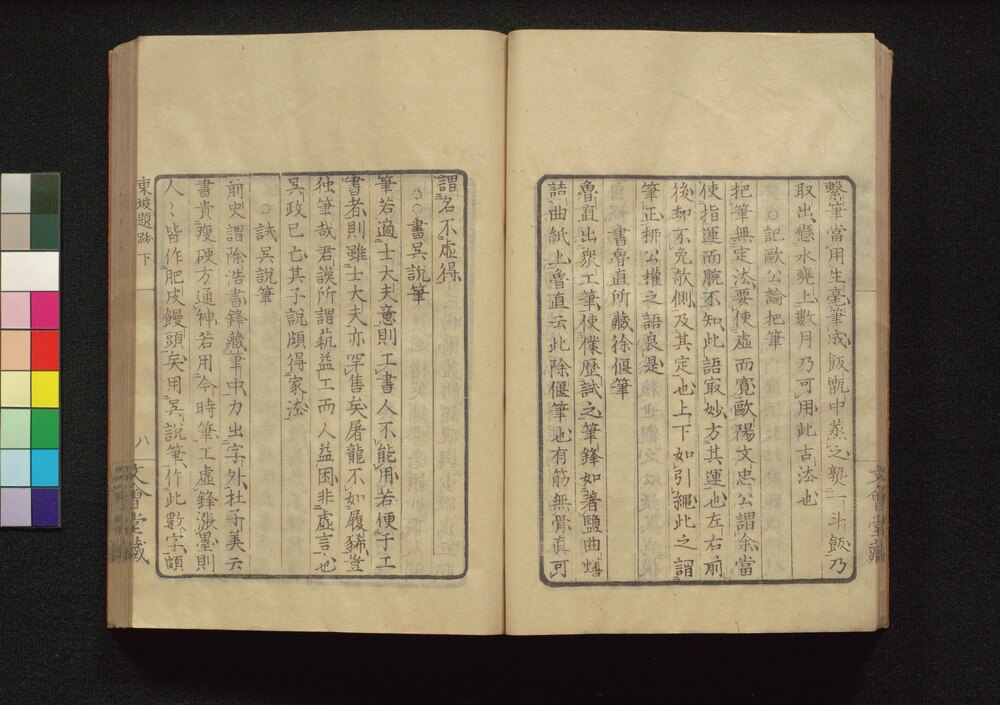 繫筆當用生毫筆成飯甑中蒸之𤍠一斗飯乃
取出懸水甕上數月乃可用此古法也
○記歐公論把筆
把筆無定法要使虛而寬歐陽文忠公謂余當
使指運而腕不知此語㝡妙方其運也左右前
後却不免欹側及其定也上下如引繩此之謂
筆正栁公權之語良是
書魯直所藏徐偃筆
魯直出衆工筆使僕歷試之筆鋒如著鹽曲蟮
詰曲紙上魯直云此徐偃筆也有筋無骨真可
謂名不虛得
○○書吳說筆
筆若適士大夫意則工書人不能用若便于工
書者則雖士大夫亦罕售矣屠龍不如履豨豈
独筆哉君謨所謂藝益工而人益困非虛言也
吳政已亡其子說頗得家法
○試吳說筆
前史謂徐浩書鋒藏筆中力出字外杜子美云
書貴瘦硬方通神若用今時筆工虛鋒漲墨則
人〻皆作肥皮饅頭矣用吳說筆作此數字頗
東坡題跋 下
八
文會堂藏
文會堂藏